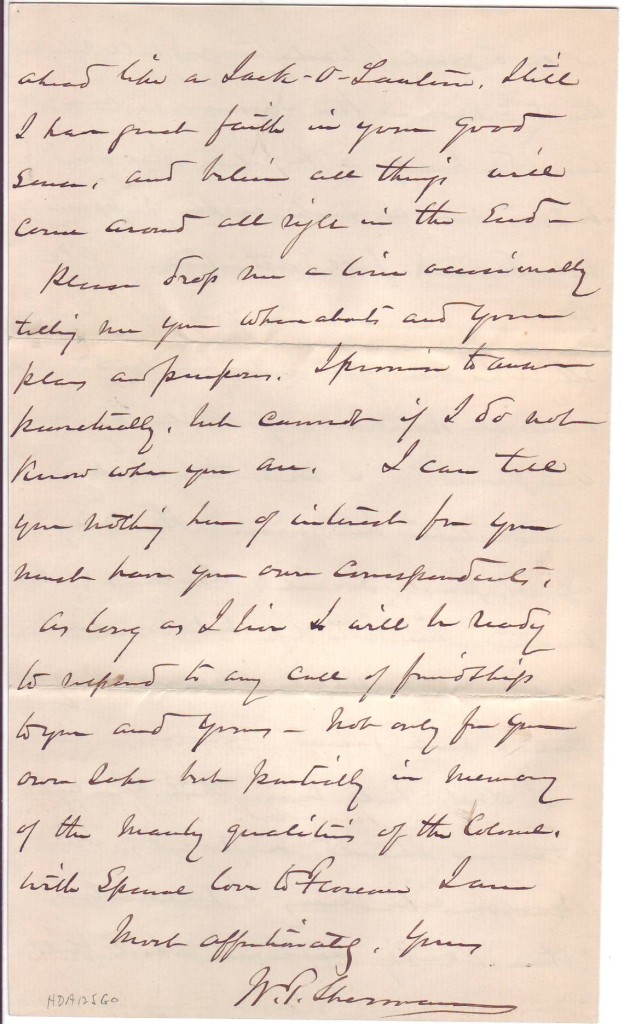 ahead like a Jack-O-Lantern. Still
I have great faith in your good
sense, and believe all things will
come around all right in the End -
Please drop me a line occasionally
telling me your whereabouts and your
plans and purposes. I promise to answer
punctually, but cannot if I do not
Know where you are. I can tell
you nothing here of interest for you
must have your own correspondents.
As long as I live I will be ready
to respond to any call of friendship
to you and yours - Not only for your
own sake but partially in memory
of the Manly qualities of the Colonel.
With Special love to Florence I am
Most affectionately, Yours
W. T. Sherman
HDA125GO